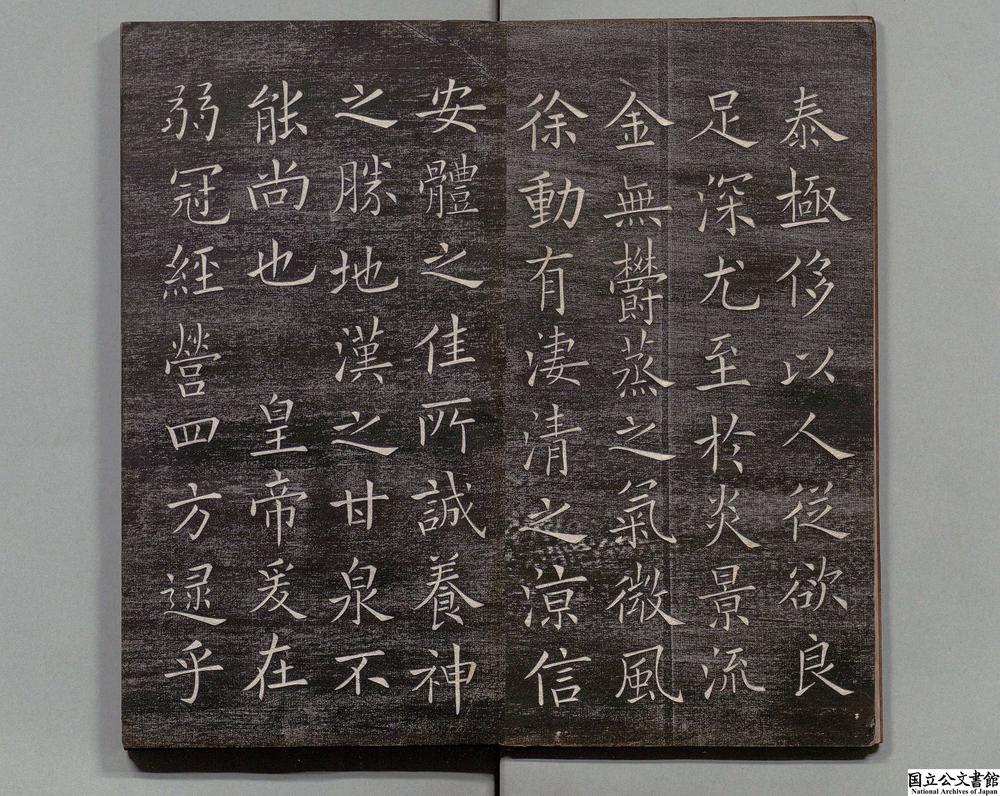 泰極侈以人從欲良
足深尤至於炎景流
金無欝蒸之氣微風
徐動有淒清之涼信
安體之佳所誠養神
之勝地漢之甘泉不
能尚也皇帝爰在
弱冠經營四方逮乎
国立公文書館
National Archives of Japan